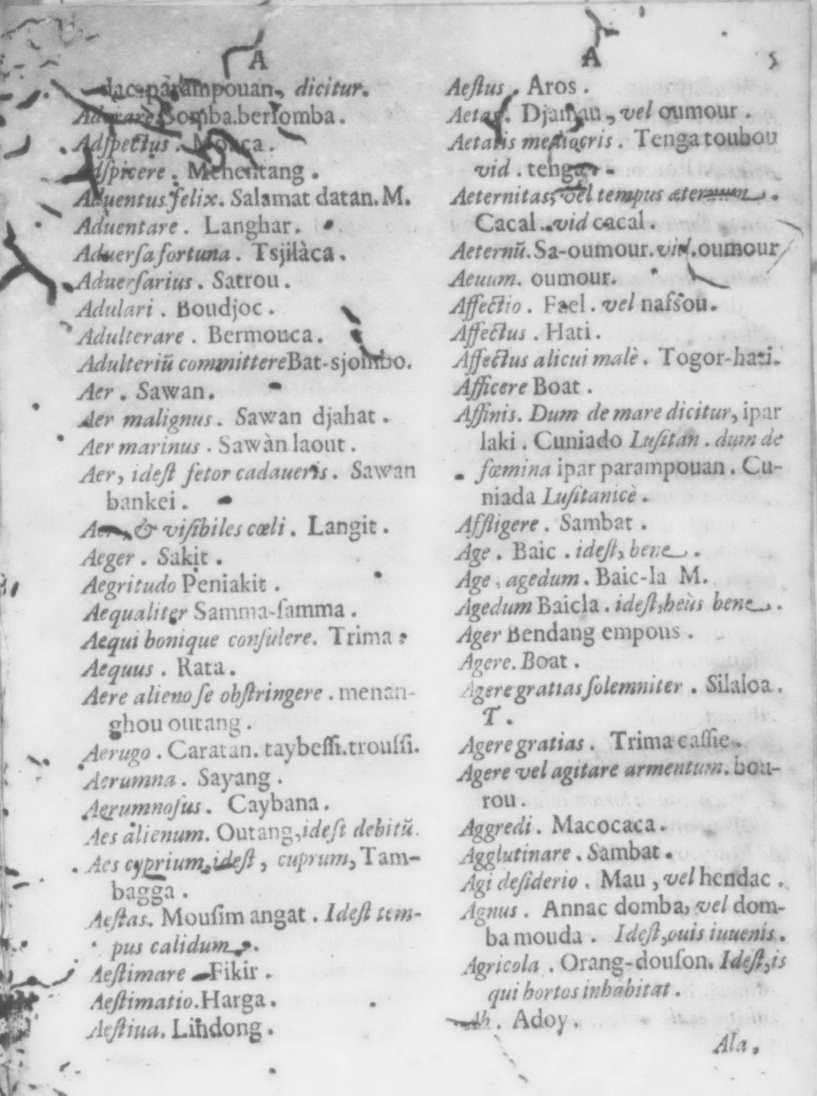 A
dac-parampouan, dicitur.
Adorare Somba.berſomba.
Adſpectus. Mouca.
Adſpicere. Menentang.
Aduentus felix. Salamat datan. M.
Aduentare. Langhar.
Aduerſa fortuna. Tsjilàca.
Aduerſarius. Satrou.
Adulari. Boudjoc.
Adulterare. Bermouca.
Adulteriũ committere Bat-sjombo.
Aer. Sawan.
Aer malignus. Sawan djahat.
Aer marinus. Sawàn laout.
Aer, ideſt fetor cadaueris. Sawan
bankei.
& viſibiles cœli. Langit.
Aeger. Sakit.
Aegritudo Peniakit.
Aequaliter Samma-ſamma.
Aequi bonique conſulere. Trima.
Aequus. Rata.
Aere alieno ſe obſtringere. menan-
ghou outang.
Aerugo. Caratan. taybeſſi.trouſſi.
Aerumna. Sayang.
Aerumnoſus. Caybana.
Aes alienum. Outang, ideſt debitũ.
Aes cyprium, ideſt, cuprum, Tam-
bagga.
Aeſtas. Mouſim angat. Ideſt tem-
pus calidum.
Aeſtimare Fikir.
Aeſtimatio. Harga.
Aeſtiua. Lindong.
A 5
Aeſtus. Aros.
Aetas. Djamau, vel oumour.
Aetatis mediocris. Tenga toubou
vid. tenga.
Aeternitas, vel tempus æternum.
Cacal. vid cacal.
Aeternũ. Sa-oumour. vid. oumour
Aeuum. oumour.
Affectio. Fael. vel naſſou.
Affectus. Hati.
Affectus alicui malè. Togor-hati.
Afficere Boat.
Affinis. Dum de mare dicitur, ipar
laki. Cuniado Luſitan. dum de
fœmina ipar parampouan. Cu-
niada Luſitanicè.
Affligere. Sambat.
Age. Baic. ideſt, bene.
Age, agedum. Baic-la M.
Agedum Baicla. ideſt, heùs bene.
Ager Bendang empous.
Agere. Boat.
Agere gratias ſolemniter. Silaloa.
T.
Agere gratias. Trima caſſie.
Agere vel agitare armentum. bou-
rou.
Aggredi. Macocaca.
Agglutinare. Sambat.
Agi deſiderio. Mau, vel hendac.
Agnus. Annac domba, vel dom-
ba mouda. Ideſt, ouis iuuenis.
Agricola. Orang-douſon. Ideſt, is
qui hortos inhabitat.
Ah. Adoy.
Ala.